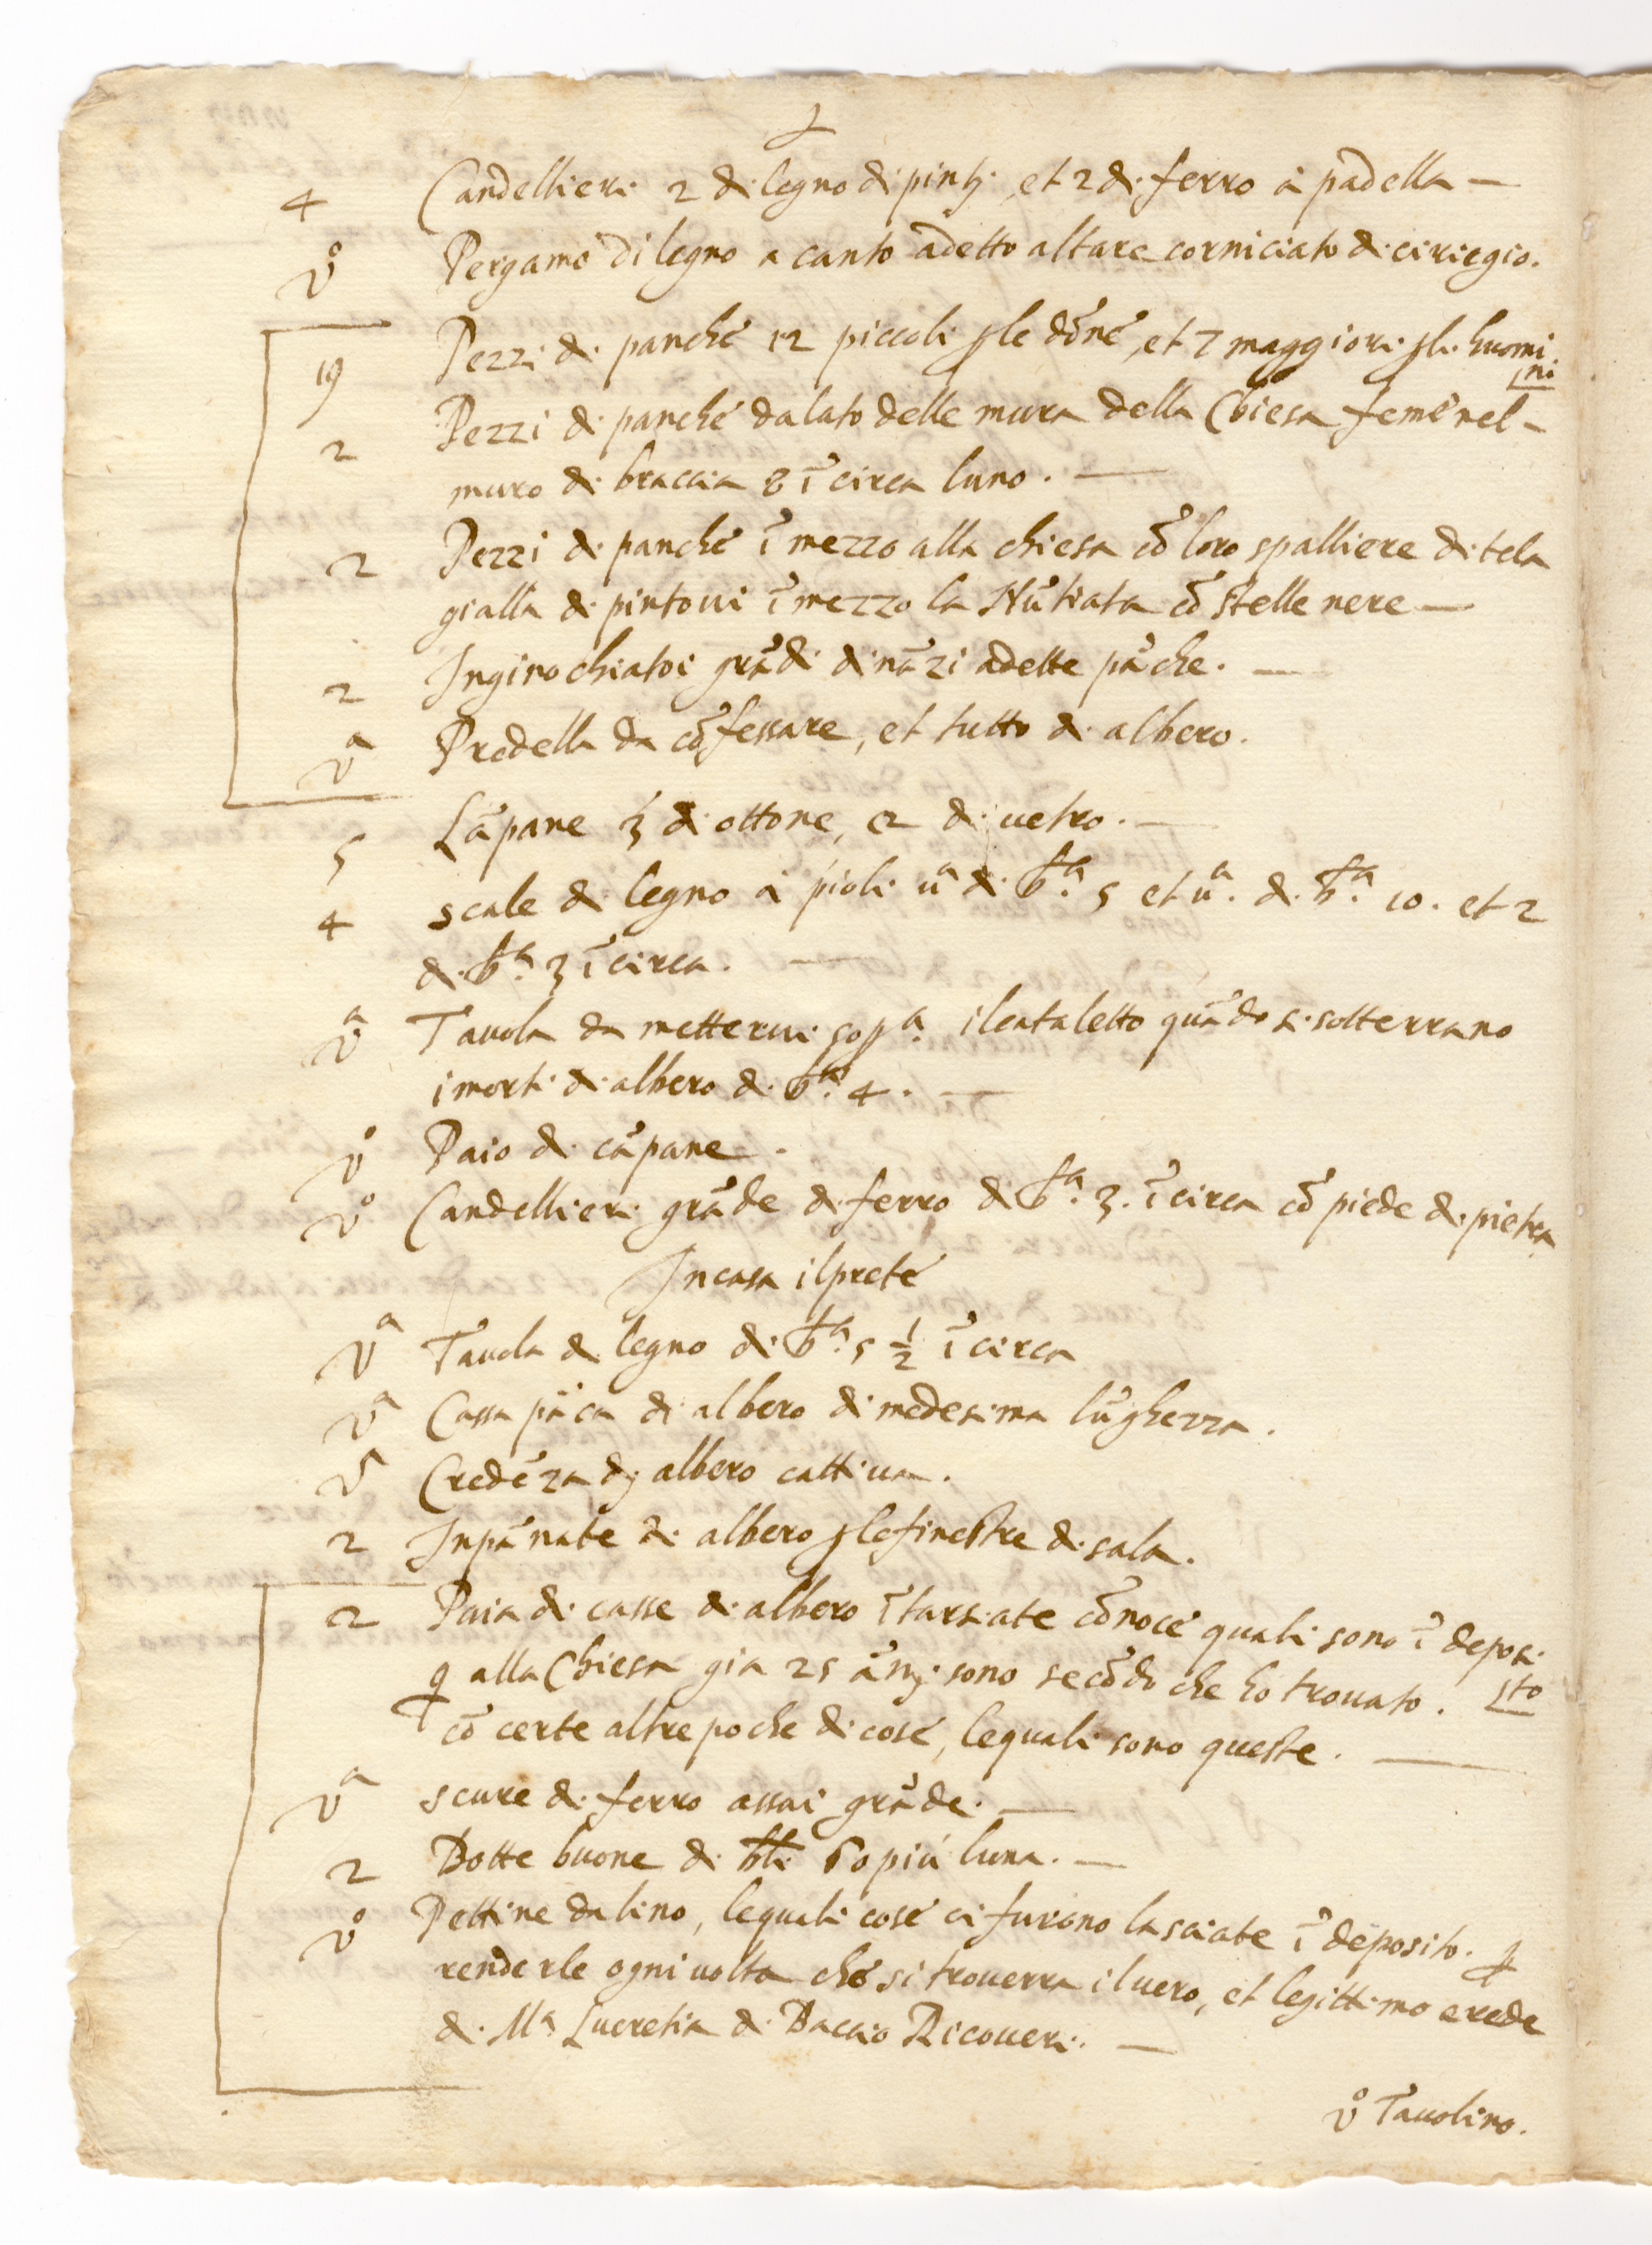 4 Candellieri 2 di legno dipinti, et 2 di ferro à padella —
vº Pergamo di legno a canto adetto altare corniciato di ciriegio.
19 Pezzi di panche 12 piccoli ꝑ le dōne, et 7 maggiori ꝑ li huomi
ni
2 Pezzi di panche dalato delle mura della Chiesa ferme nel -
muro di braccia 8 ī circa luno. —
2 Pezzi di panche ī mezzo alla chiesa cō loro spalliere di tela
gialla di pintoui ī mezzo la Nūtiata cō stelle nere —
2 Inginochiatoi grādi dināzi adette pāche. —
vª Predella da cōfessare, et tutto di albero.
5 Lāpane 3 di ottone, e 2 di uetro. —
4 scale di legno à pioli uª di bª. 5 et uª. di bª. 10. et 2
di bª. 3 ī circa. —
vª Tauola da metterui sopª. ilcataletto quādo si sotterrano
i morti di albero di bª. 4. —
vº Paio di cāpane.
vº Candellieri grāde di ferro di bª. 3. ī circa cō piede di pietra
In casa ilprete
vª Tauola di legno di bª. 5 ½ ī circa
vª Cassa pāca di albero di medesima lūghezza.
vª Credēza di albero cattiua.
2 Inpānate di albero ꝑ lefinestre di sala.
2 Paia di casse di albero ītarsiate cō noce quali sono ī deposi
to
ꝗ alla Chiesa gia 25 āni sono secōdo che ho trouato.
cō certe altre poche di cose, lequali sono queste. —
vª scure di ferro assai grāde. —
2 Botte buone di bli. 6 o più luna. —
vº Pettine da lino, lequali cose ci furono lasciate ī deposito. ꝑ
renderle ogni uolta che si trouerra iluero, et legittimo erede
di Mª Lucretia di Baccio Ricoueri. —
vº Tauolino.